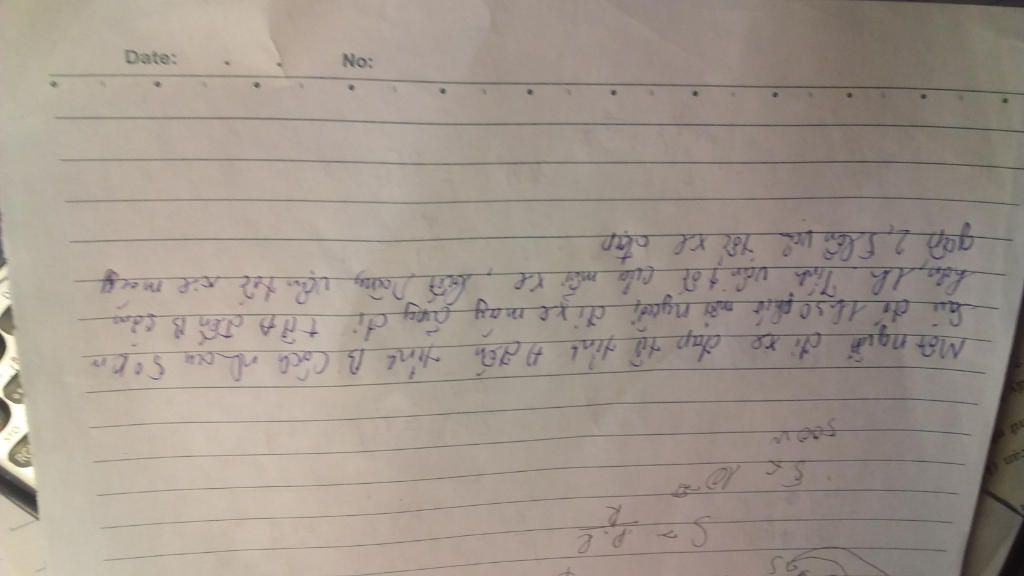 Date: No:
Một người đi xe đạp từ tỉnh A đến tỉnh B cách nhau 50km
sau đó 1h30 phút một người đi xe máy cũng đi từ A đến B sớm
hơn 1h Tính vận tốc của mỗi xe, biết rằng vận tốc xe máy
gấp 2,5 lần vận tốc xe đạp
500w
5 x 10
S = R